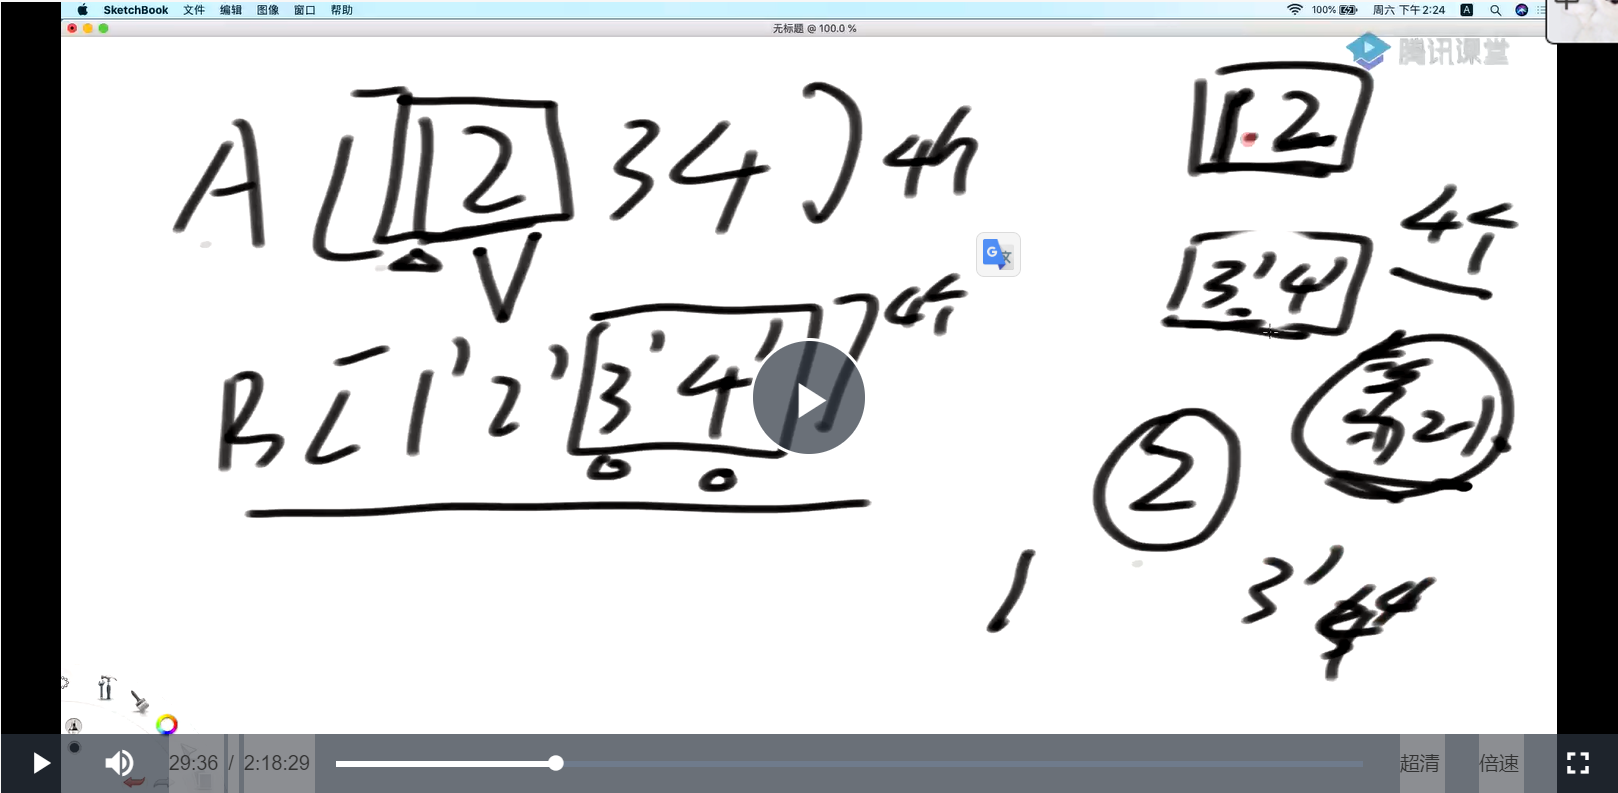 SketchBook 文件 编辑 图像 窗口 帮助 100% 周六 下午2:24 A
无标题 @ 100.0 %
腾讯课堂
A [ 1 2 3 4 ] 4个
1 2
B [ 1' 2' 3' 4' ] 4个
3' 4' 4个
2
第2小
1
3' 4' 4
29:36 / 2:18:29 超清 倍速